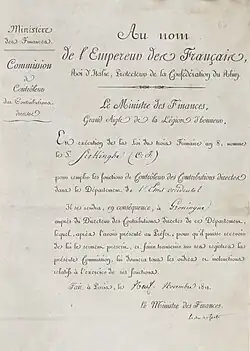 Ministère
des Finances.
Commission
de
Contrôleur
des Contributions
directes
Au nom
de l'Empereur des Français,
Roi d'Italie, Protecteur de la Confédération du Rhin,
Le Ministre des Finances,
Grand Aigle de la Légion d'honneur,
En exécution de la Loi du trois Frimaire an 8, nomme
le S.
pour remplir les fonctions de Contrôleur des Contributions directes
dans le Département de l'Ems occidental
Il se rendra, en conséquence, à Groningue
auprès du Directeur des Contributions directes de ce Département,
lequel, après l'avoir présenté au Préfet, pour qu'il puisse recevoir
de lui le serment prescrit, et faire transcrire sur ses registres la
présente Commission, lui donnera tous les ordres et instructions
relatifs à l'exercice de ses fonctions.
Fait à Paris, le Novembre 1811.
Le Ministre des Finances.